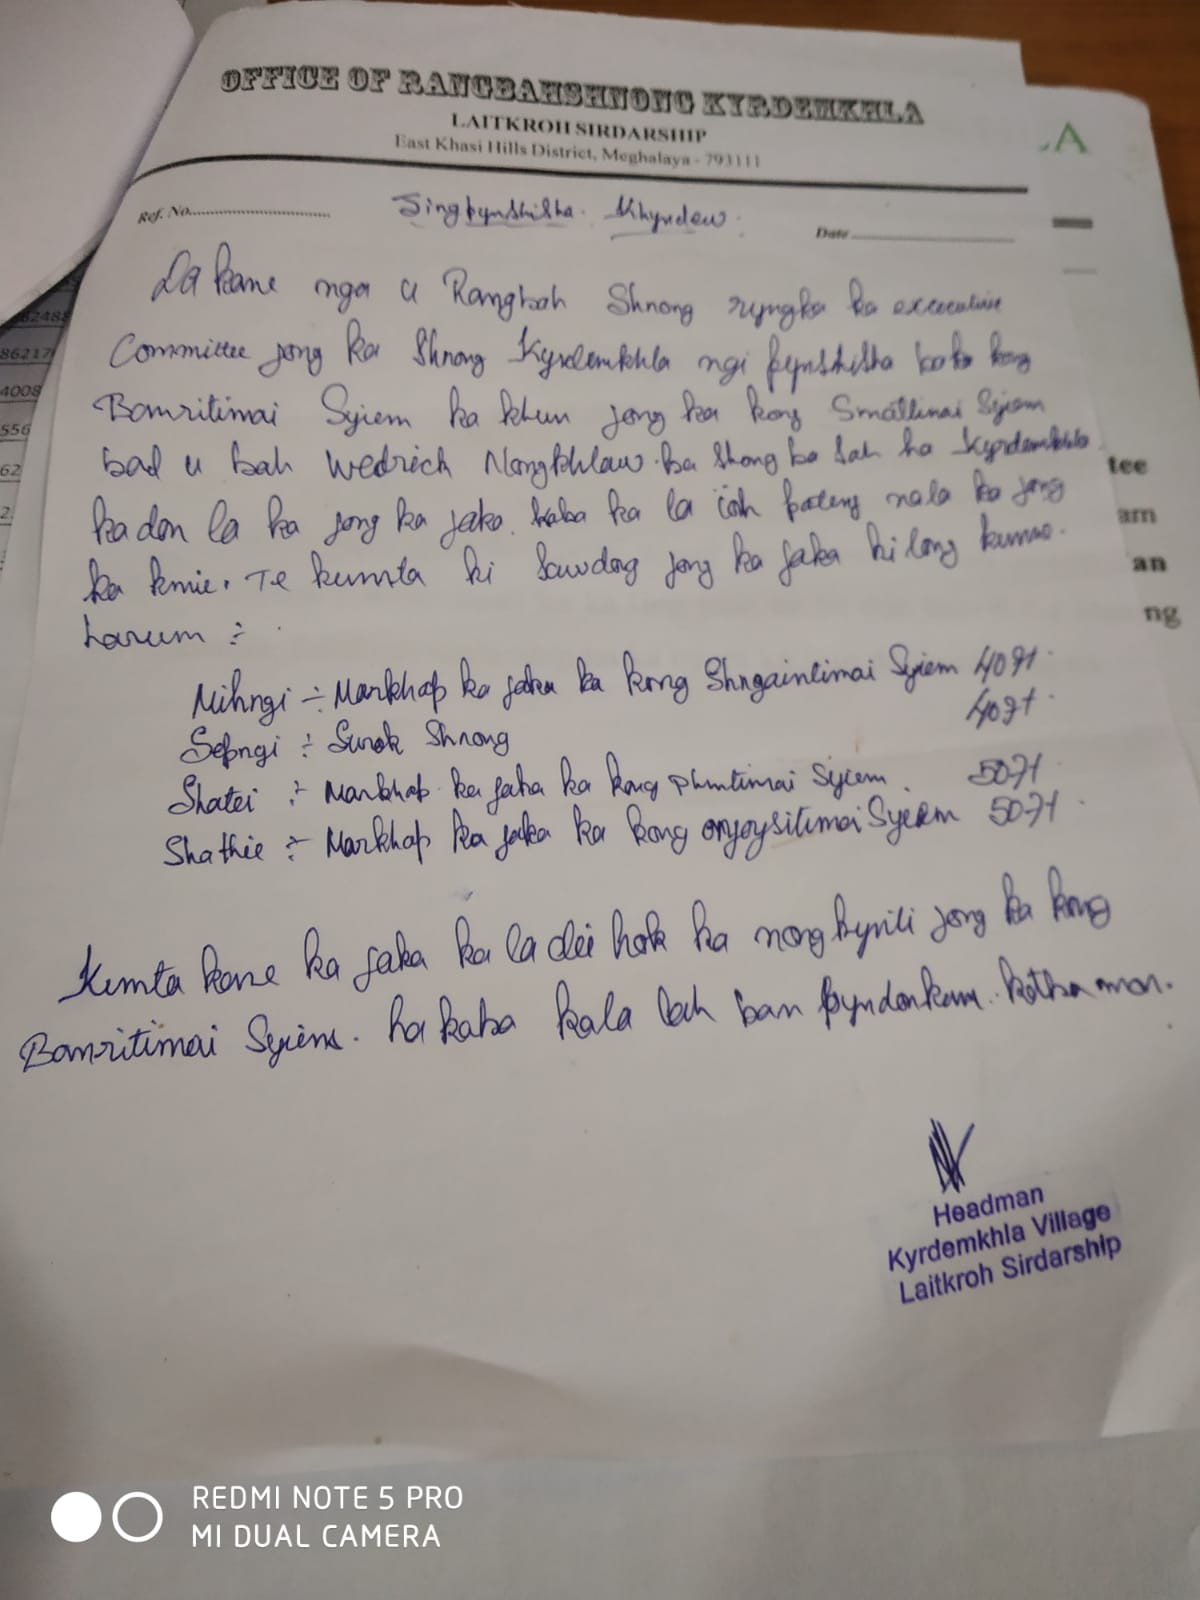 OFFICE OF RANGBAHSHNONG KYRDEMKHLA
LAITKROH SIRDARSHIP
East Khasi Hills District, Meghalaya - 793111
Ref. No.
Jingpynshisha Khyndew.
Date
Da kane nga u Rangbah Shnong ryngka ka executive
Committee jong ka Shnong Kyrdemkhla ngi pynshisha kata kong
Bamritimai Syiem ka khun jong ka kong Smatlimai Syiem
bad u bah Wedrich Nongkhlaw ba shong ba sah ha Kyrdemkhla
ka don la ka jong ka jaka kaba ka la ioh pateng na la ka jong
ka kmie. Te kumta ki sawdong jong ka jaka ki long kumne
harum :-
Mihngi :- Markhap ka jaka ka kong Shngaintimai Syiem 40ft
Sepngi :- Surok Shnong 40ft
Shatei :- Markhap ka jaka ka kong Syiem 50ft
Shathie :- Markhap ka jaka ka kong Syiem 50ft
Kumta kane ka jaka ka la dei hok ka nongkynti jong ka kong
Bamritimai Syiem. ha kaba kala lah ban pyndonkam kotba mon.
Headman
Kyrdemkhla Village
Laitkroh Sirdarship
A
tee
am
an
ng
86217
4008
556
62
2
REDMI NOTE 5 PRO
MI DUAL CAMERA